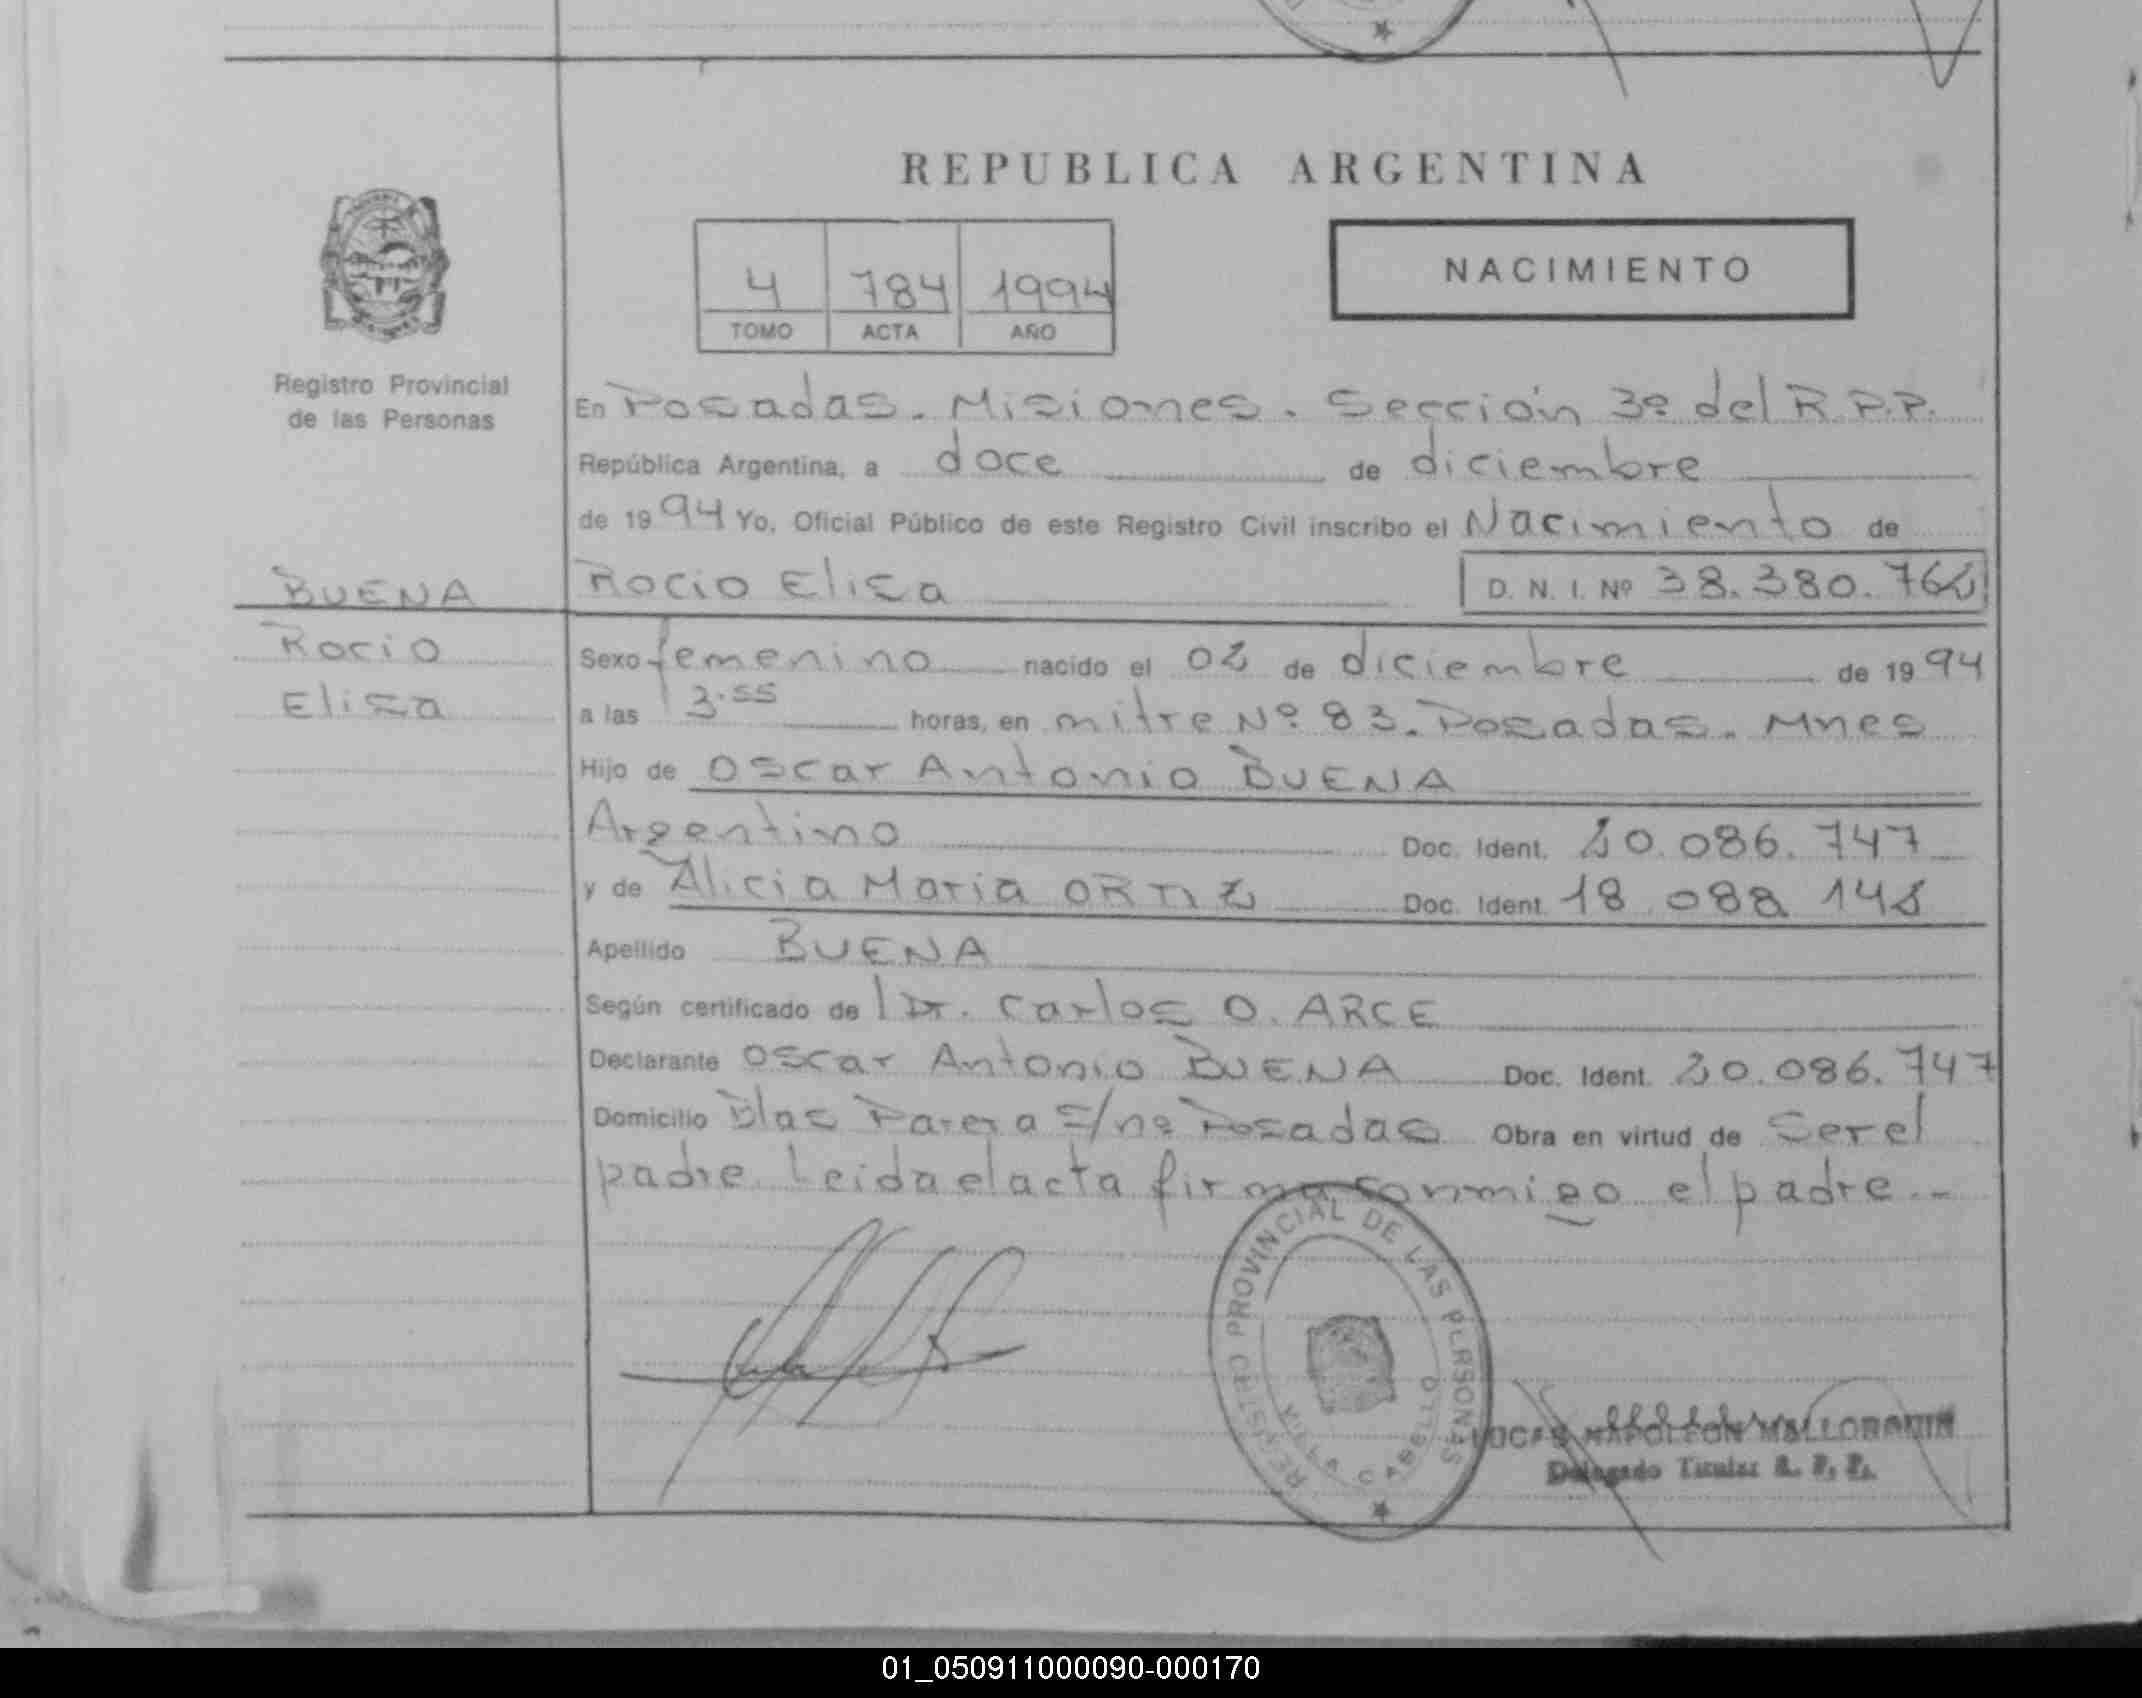 REPUBLICA ARGENTINA
4 784 1994
TOMO ACTA AÑO
NACIMIENTO
Registro Provincial
de las Personas
En Posadas. Misiones. Sección 3º del R.P.P.
República Argentina, a doce de diciembre
de 1994 Yo, Oficial Público de este Registro Civil inscribo el Nacimiento de
BUENA
Rocio
Elisa
Rocio Elisa D. N. I. Nº 38.380.762
Sexo femenino nacido el 02 de diciembre de 1994
a las 3.55 horas, en mitre Nº 83. Posadas. Mnes
Hijo de Oscar Antonio BUENA
Argentino Doc. Ident. 20.086.747
y de Alicia Maria ORTIZ Doc. Ident. 18 088
Apellido BUENA
Según certificado de Dr. Carlos O. ARCE
Declarante Oscar Antonio BUENA Doc. Ident. 20.086.747
Domicilio Blas Parera S/nº Posadas Obra en virtud de Ser el
padre. Leida el acta firma conmigo el padre.-
REGISTRO PROVINCIAL DE LAS PERSONAS
VILLA CABELLO
LUCAS NAPOLEON
Delegado Titular R. P. P.
01_050911000090-000170